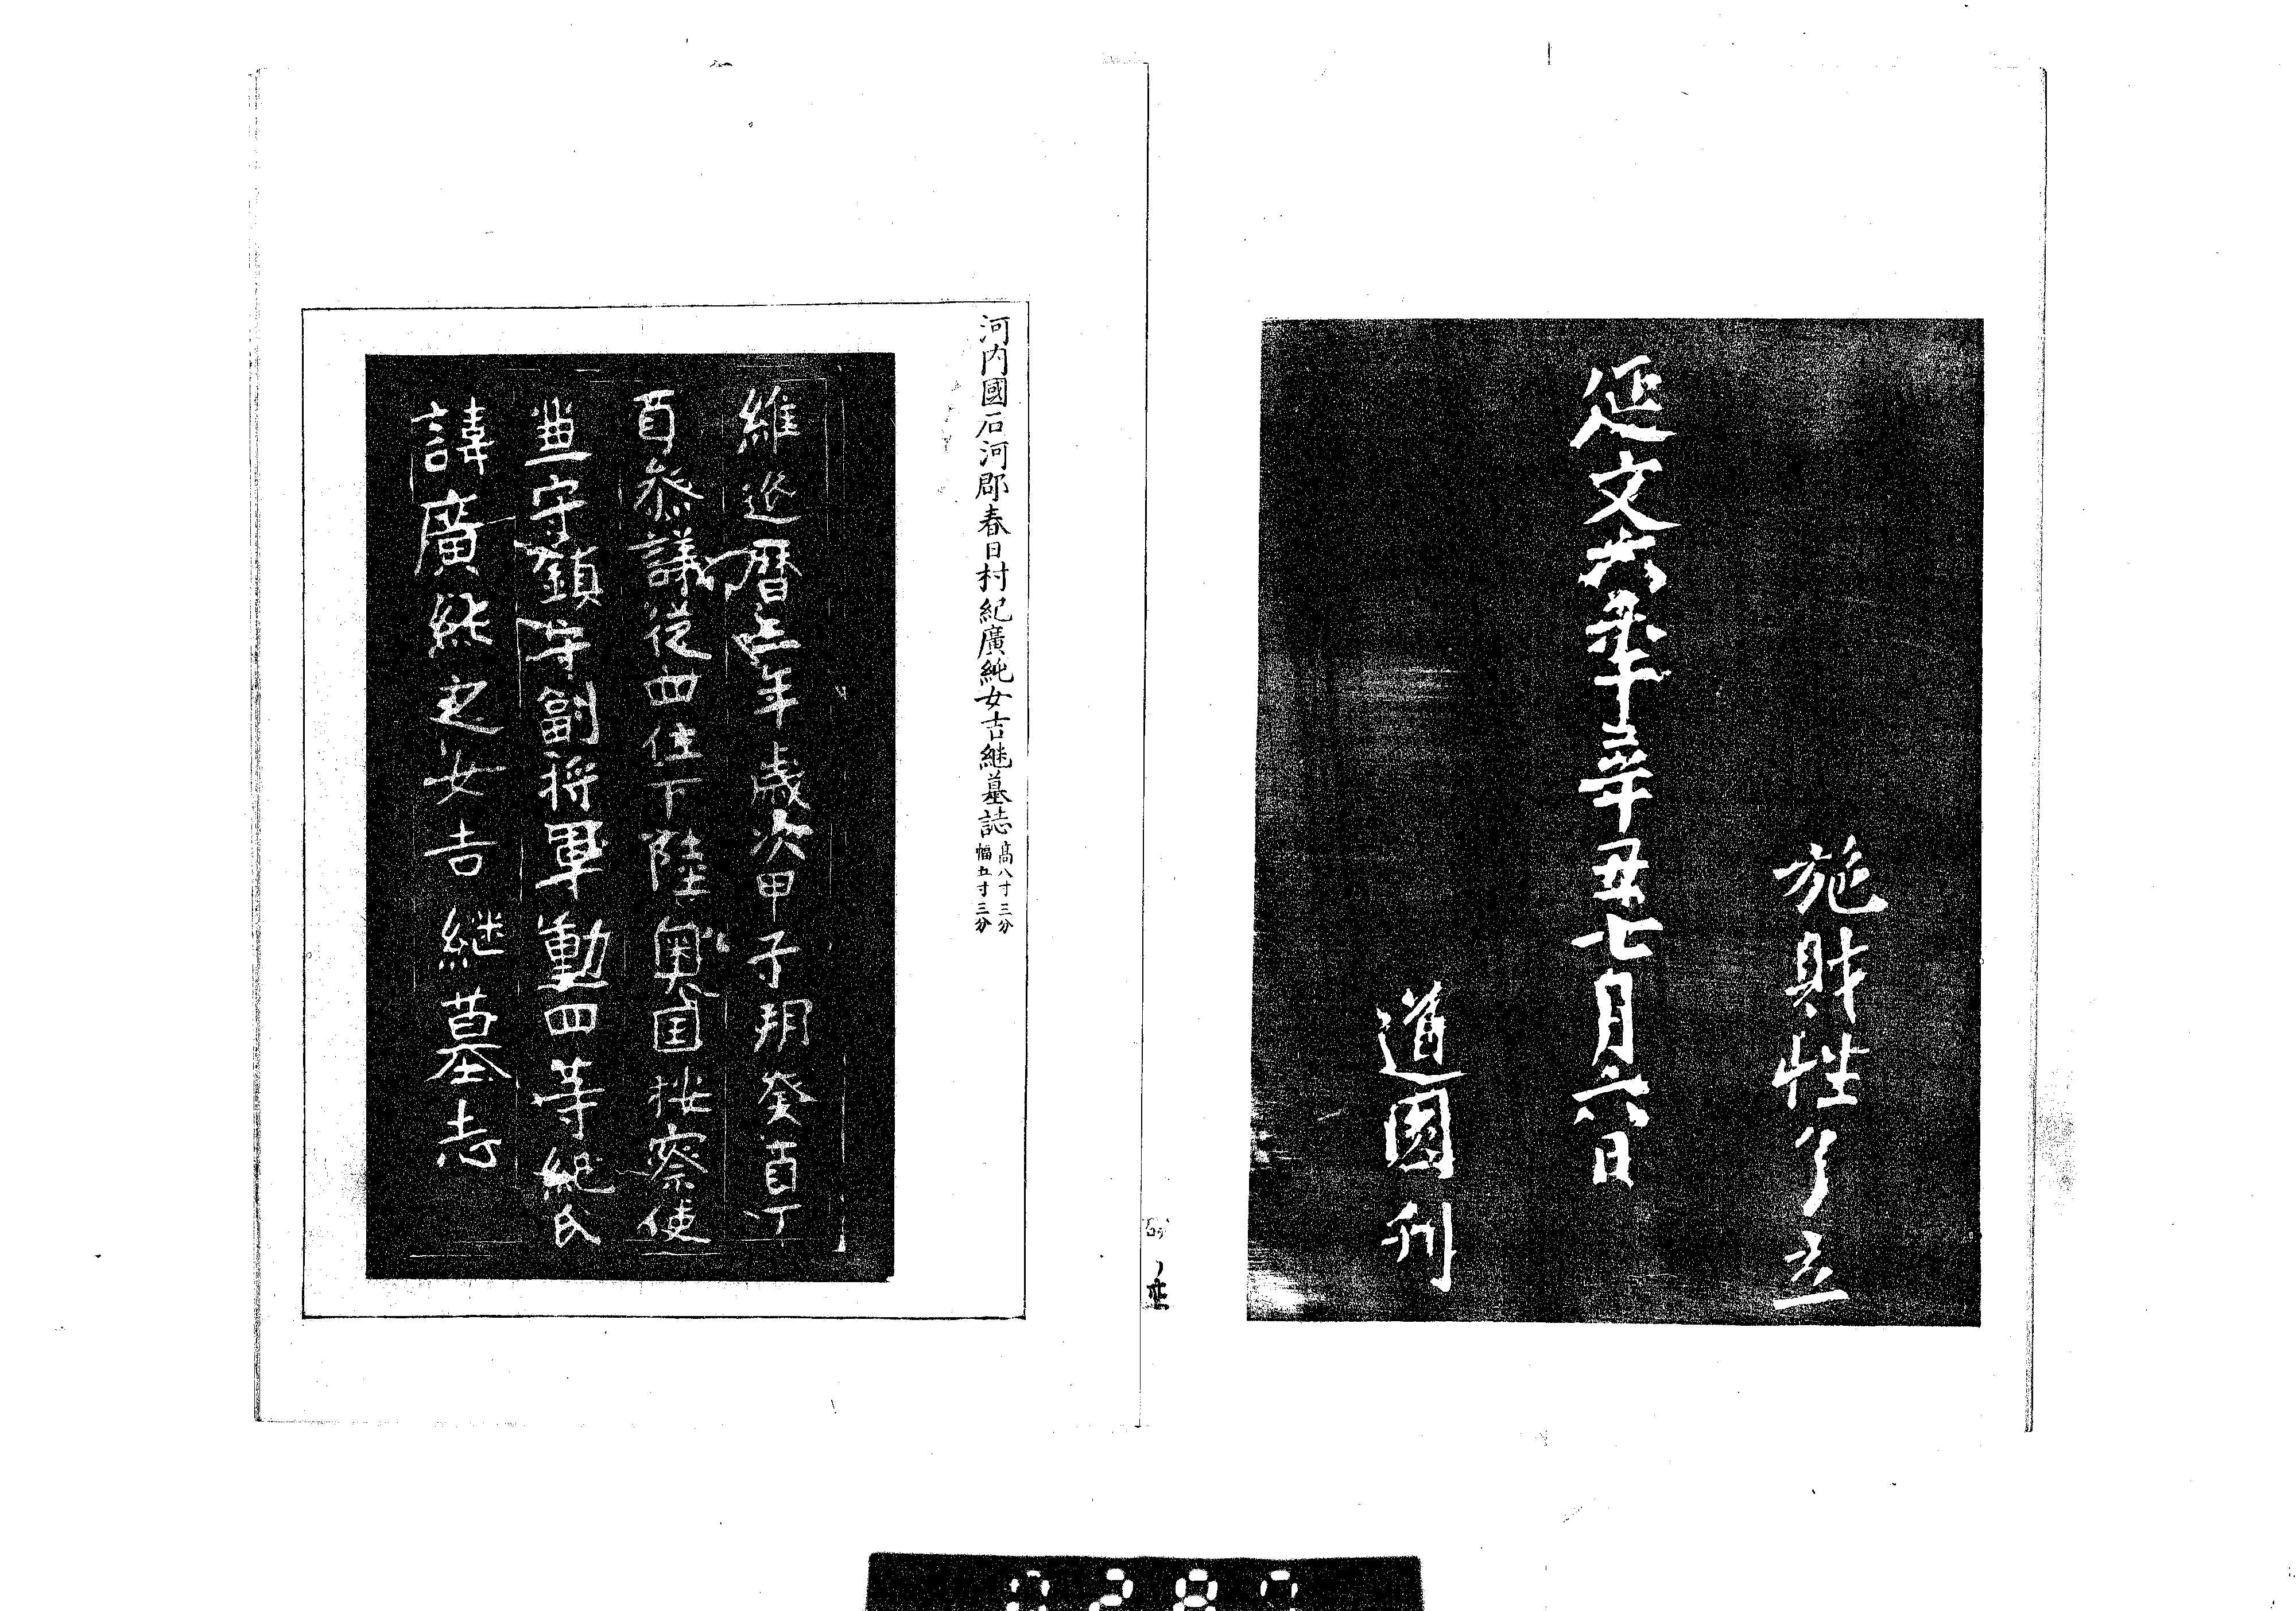 施財性了立
延文六年辛丑七月六日
道圓刊
河内國石河郡春日村紀廣純女吉継墓誌
高八寸三分
幅五寸三分
維延暦三年歳次甲子朔癸酉丁
酉叅議従四位下陸奥国按察使
兼守鎮守副将軍勳四等紀氏
諱廣純之女吉継墓志